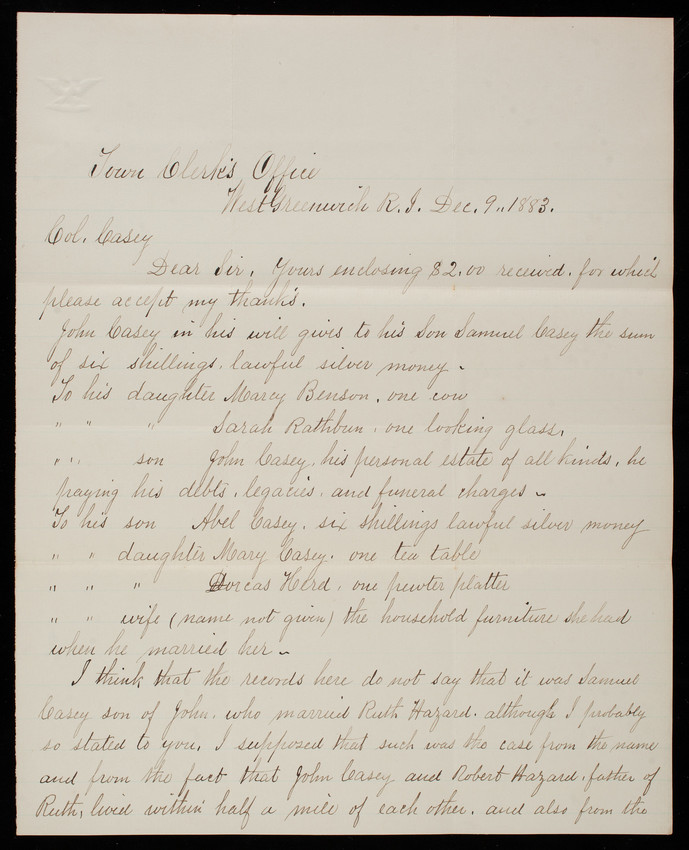 Town Clerk's Office
West Greenwich R. I. Dec. 9,, 1883.
Col. Casey
Dear Sir, Yours enclosing $2.00 received. for which
please accept my thanks.
John Casey in his will gives to his Son Samuel Casey the sum
of six shillings, lawful silver money.
To his daughter Marcy Benson, one cow
" " " Sarah Rathbun. one looking glass.
" " son John Casey, his personal estate of all kinds, he
paying his debts, legacies, and funeral charges.
To his son Abel Casey, six shillings lawful silver money
" " daughter Mary Casey. one tea table
" " " Dorcas Herd, one pewter platter
" " wife (name not given) the household furniture she had
when he married her.
I think that the records here do not say that it was Samuel
Casey son of John, who married Ruth Hazard. although I probably
so stated to you. I supposed that such was the case from the name
and from the fact that John Casey and Robert Hazard, father of
Ruth, lived within half a mile of each other. and also from the